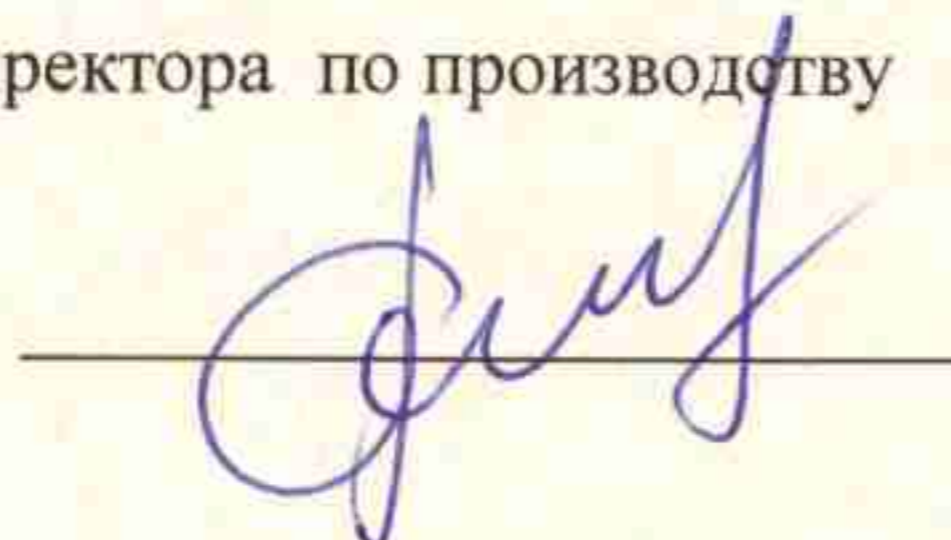 ректора по производству